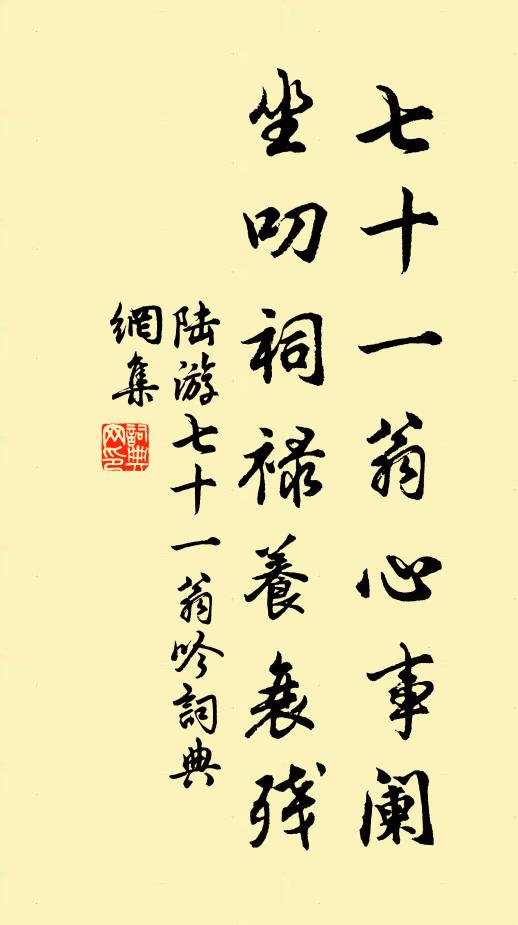 七十一翁心事阑
坐叨祠禄养衰残
陆游七十一翁吟詞典
網集
詞典
网印